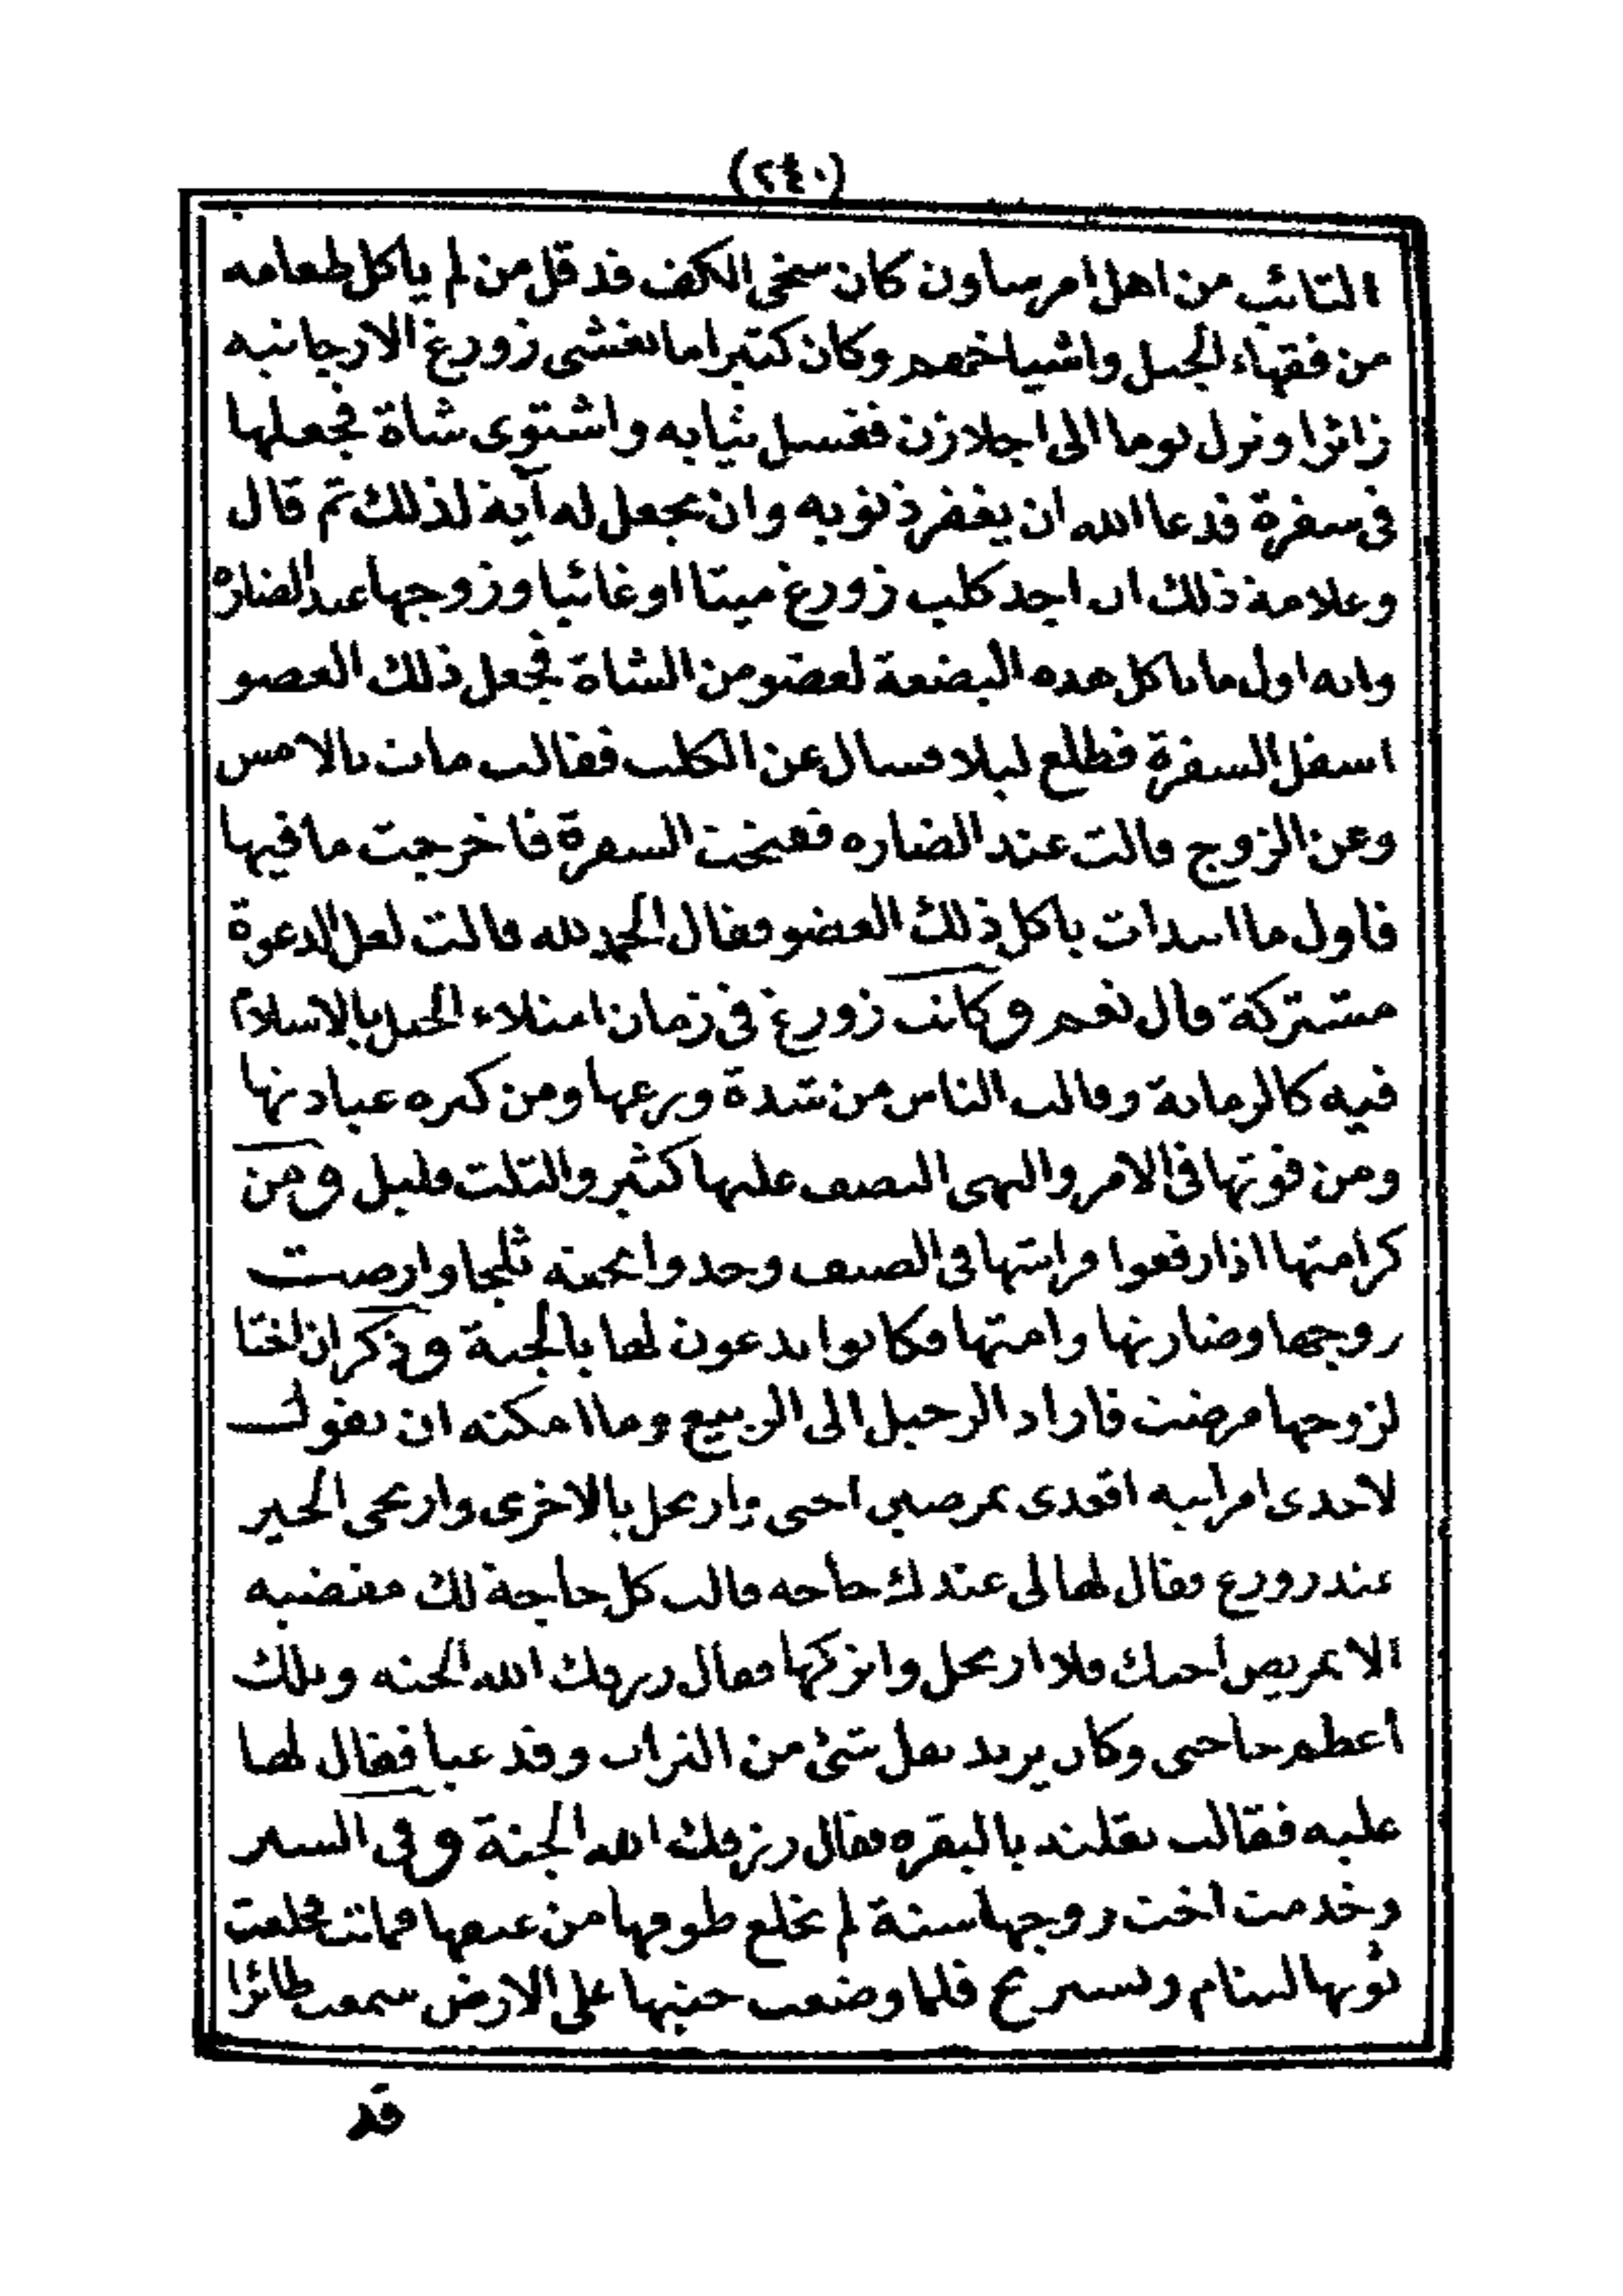 (٢٤٠)
التائب من اهل امرساون كان سخى الكف قد قل من لم ياكل طعامه
من فقهاء الجبل واشياخهم وكان كثيرا ما يغشى زورغ الارجانيه
زائرا ونزل يوما الى اجلازن فغسل ثيابه واشتوى شاة فجعلها
فى سفرة فدعا الله ان يغفر ذنوبه وان يجعل له آية لذلك ثم قال
وعلامة ذلك ان اجد كلب زورغ ميتا او غائبا وزوجها عند الضارة
وانه اول ما ياكل هذه البضعة لعضو من الشاة فجعل ذلك العضو
اسفل السفرة فطلع ليلا فسال عن الكلب فقالت مات بالامس
وعن الزوج قالت عند الضاره ففتحت السفرة فاخرجت ما فيها
فاول ما ابتدات باكل ذلك العضو فقال الحمد لله قالت لعل الدعوة
مشتركة قال نعم وكانت زورغ فى زمان امتلاء الجبل بالاسلام
فيه كالرمانة وقالت الناس من شدة ورعها ومن كثره عبادتها
ومن قوتها فى الامر والنهى النصف عليها كثير والثلث قليل ومن
كرامتها اذا رفعوا فراشها فى الصيف وجدوا تحته ثلجا وارضت
زوجها وضارتها وامتها فكانوا يدعون لها بالجنة وذكر ان اختا
لزوجها مرضت فاراد الرحيل الى الربيع وما امكنه ان يقول
لاحدى امراتيه اقعدى تمرضين اختى وارتحل بالاخرى وارتجى الخير
عند زورغ فقال لها لى عندك حاجه قالت كل حاجة لك مقضيه
الا تمريض اختك فلا ارتحل واتركها فقال رزقك الله الجنه وتلك
أعظم حاجتى وكان يريد نقل شئ من التراب وقد عيا فقال لها
عليه فقالت نقلته بالبقره فقال رزقك الله الجنة وفى السير
وخدمت اخت زوجها سنة لم تخلع طوقها من عنقها فماتت فخلعت
ثوبها لتنام وتستريح فلما وضعت جنبها على الارض سمعت طائرا
قد